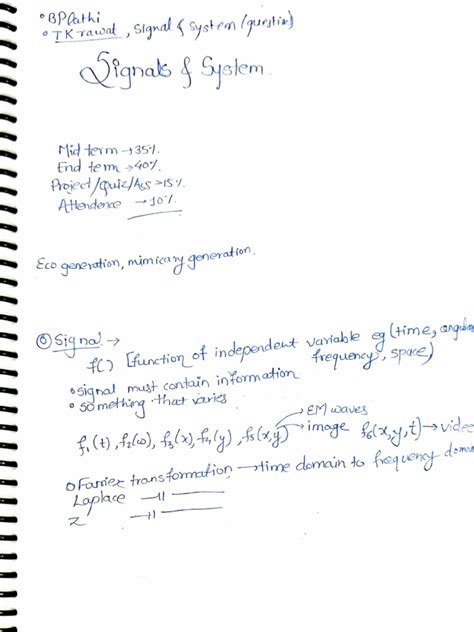 • BPLathi
• TK rawat, Signal & System (question)
Signals & System.
Mid term → 35%.
End term → 40%.
Project/Quiz/Ass → 15%.
Attendence → 10%.
Eco generation, mimicary generation.
⓪ Signal →
f( ) [function of independent variable eg (time, angular
frequency, space)
• signal must contain information
• something that varies
→ EM waves
f₁(t), f₂(ω), f₃(x), f₄(y), f₅(x,y) → image f₆(x,y,t) → video
o Farrier transformation → time domain to frequency domain
Laplace —11—
Z —11—